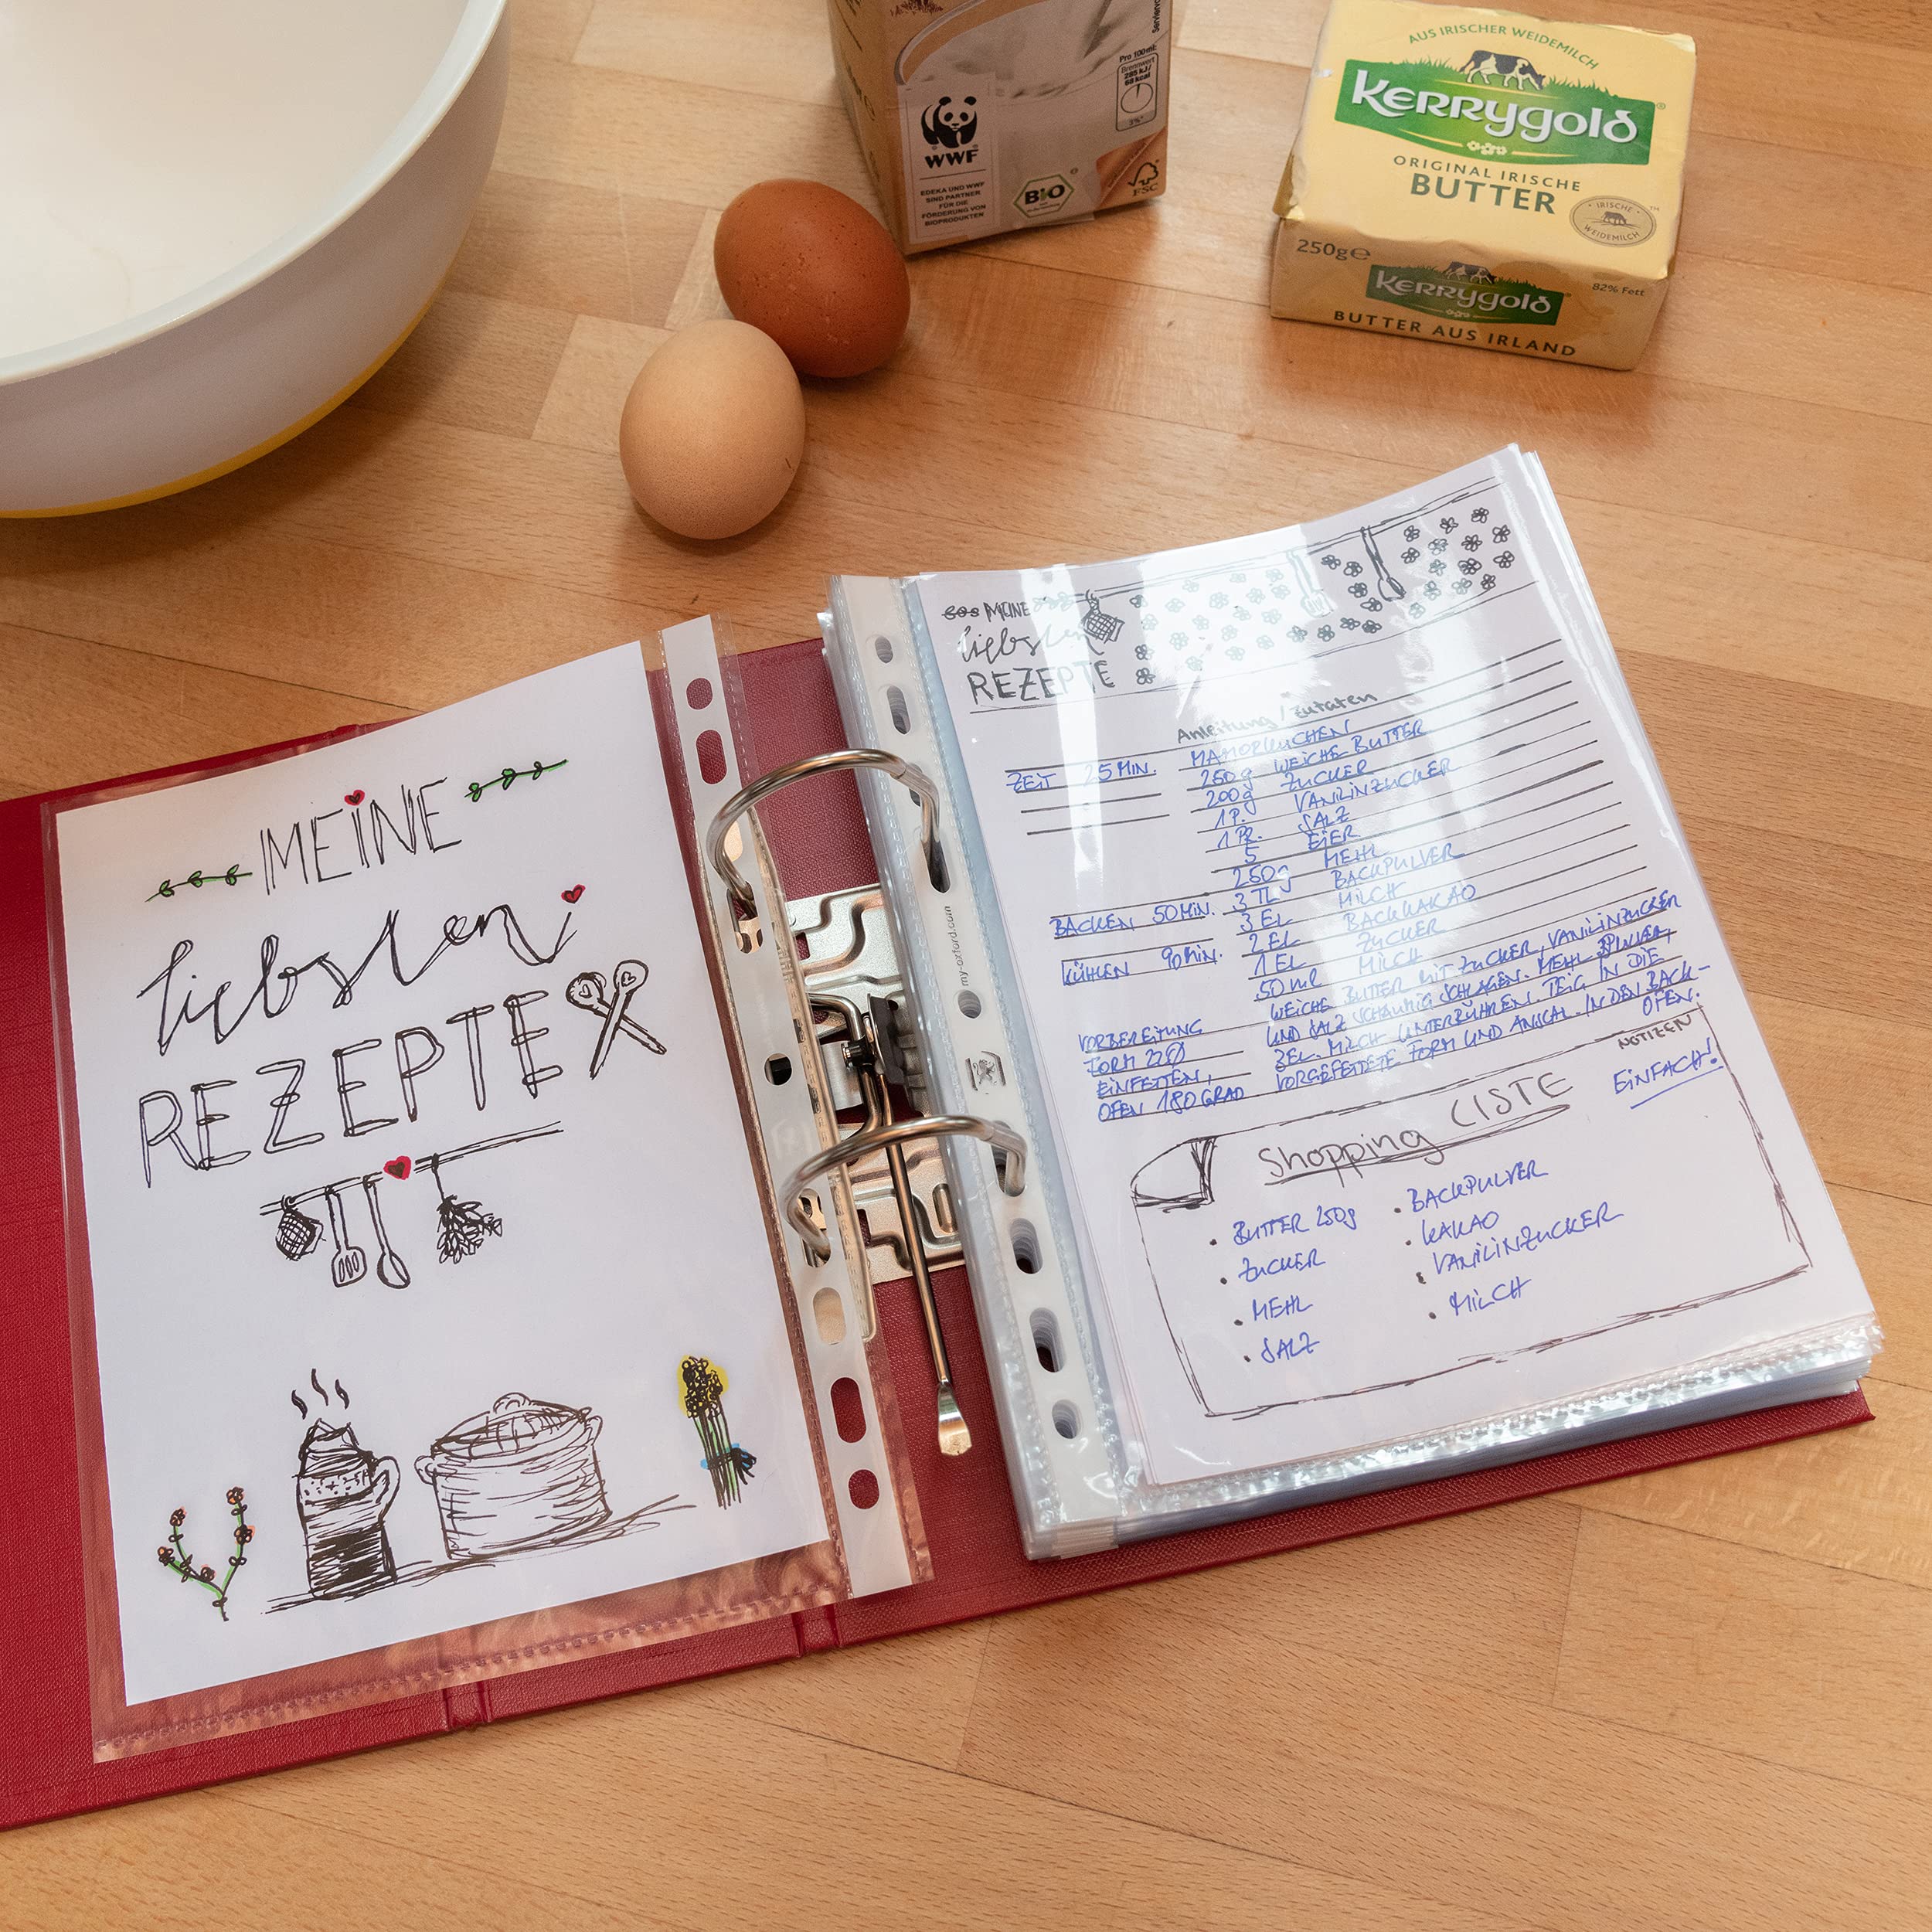 WWF
EDEKA UND WWF
SIND PARTNER
FÜR DIE
FÖRDERUNG VON
BIOPRODUKTEN
BIO
Pro 100ml:
Brennwert
285 kJ/
68 kcal
3%*
FSC
AUS IRISCHER WEIDEMILCH
Kerrygold
ORIGINAL IRISCHE
BUTTER
IRISCHE
WEIDEMILCH
250g℮
Kerrygold
82% Fett
BUTTER AUS IRLAND
MEINE
liebsten
REZEPTE
my-oxford.com
MEINE
liebsten
REZEPTE
Anleitung / Zutaten
MAMORKUCHEN
ZEIT 25 MIN. 250g WEICHE BUTTER
200g ZUCKER
1P. VANILINZUCKER
1 PR. SALZ
5 EIER
250g MEHL
3 TL BACKPULVER
BACKEN 50 MIN. 3 EL MILCH
2 EL BACKKAKAO
KÜHLEN 90 Min. 1 EL ZUCKER
50 ml MILCH
WEICHE BUTTER MIT ZUCKER, VANILINZUCKER
VORBEREITUNG UND SALZ SCHAUMIG SCHLAGEN. MEHL, BPULVER,
FORM 22Ø 3EL. MILCH UNTERRÜHREN. TEIG IN DIE
EINFETTEN, VORGEFETTETE FORM UND ANSCHL. IN DEN BACK-
OFEN 180 GRAD OFEN.
NOTIZEN
EINFACH!
Shopping LISTE
• BUTTER 250g • BACKPULVER
• ZUCKER • KAKAO
• MEHL • VANILINZUCKER
• SALZ • MILCH